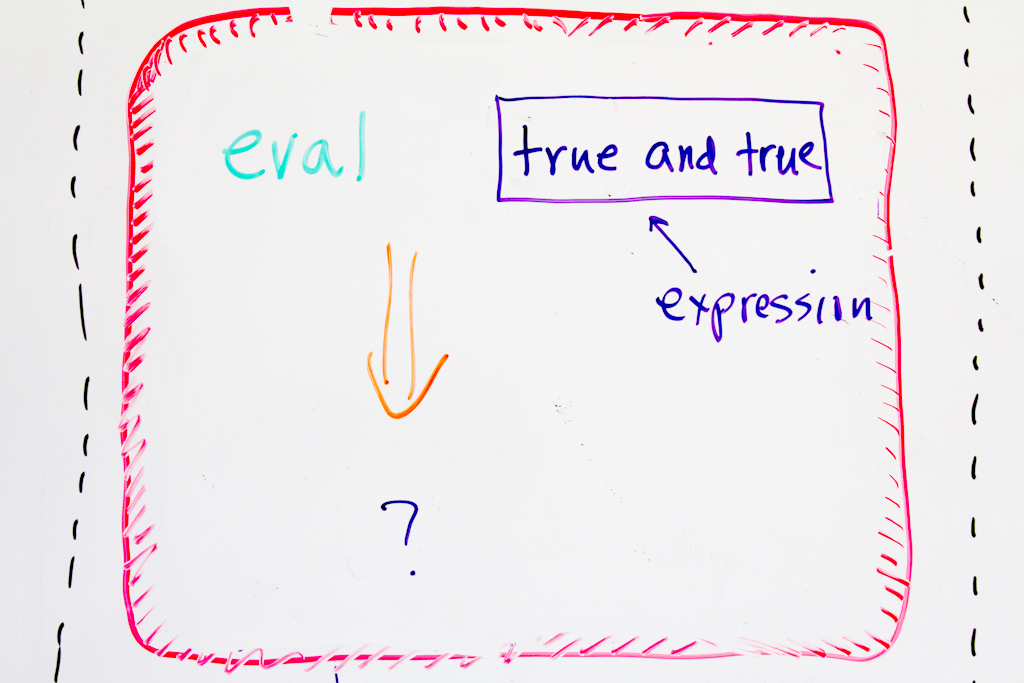 eval
true and true
expression
?